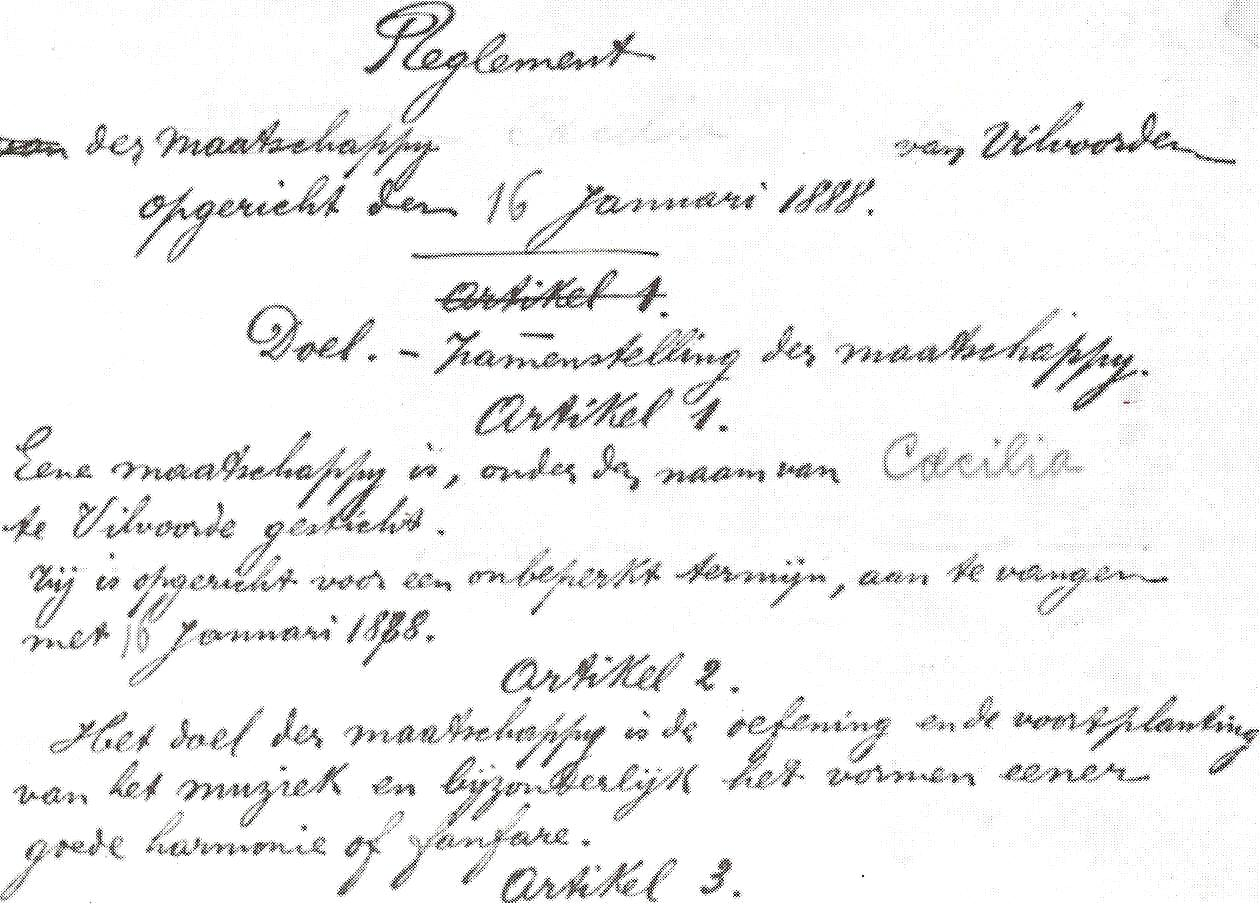 Reglement
van der maatschappy Cæcilia van Vilvorden
opgericht den 16 Januari 1888.
Artikel 1.
Doel. - Zamenstelling der maatschappy.
Artikel 1.
Eene maatschappy is, onder den naam van Cæcilia
te Vilvoorde gesticht.
Zij is opgericht voor een onbeperkt termijn, aan te vangen
met 16 Januari 1888.
Artikel 2.
Het doel der maatschappy is de oefening en de voortplanting
van het muziek en bijzonderlijk het vormen eener
goede harmonie of fanfare.
Artikel 3.